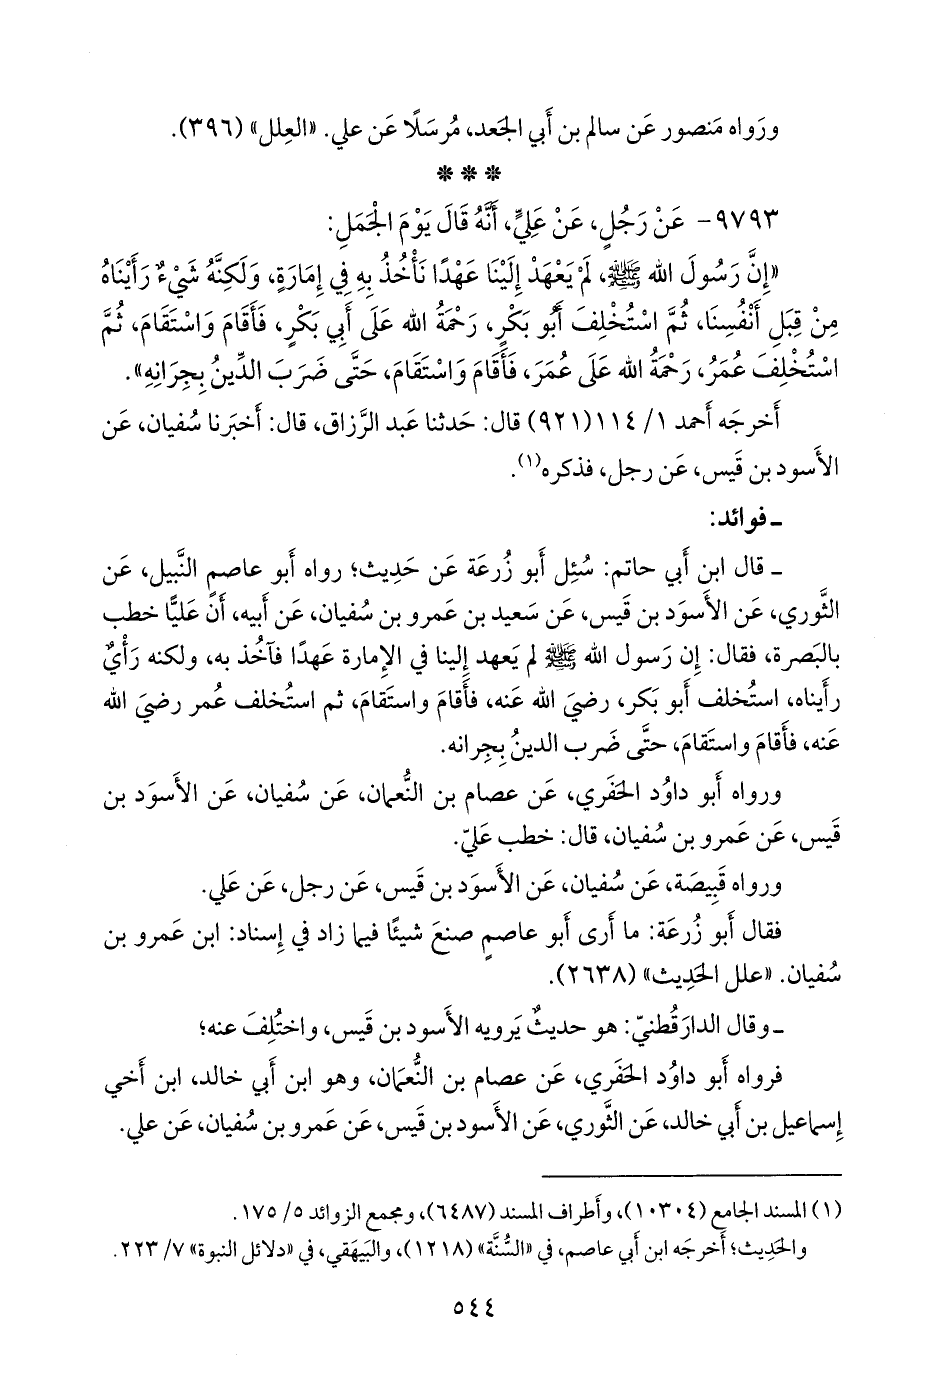 ورَواه مَنصور عَن سالم بن أَبي الجَعد، مُرسَلًا عَن علي. «العِلل» (٣٩٦).
* * *
٩٧٩٣- عَنْ رَجُلٍ، عَنْ عَلِيٍّ، أَنَّهُ قَالَ يَوْمَ الْجَمَلِ:
«إِنَّ رَسُولَ الله ﷺ، لَمْ يَعْهَدْ إِلَيْنَا عَهْدًا نَأْخُذُ بِهِ فِي إِمَارَةٍ، وَلَكِنَّهُ شَيْءٌ رَأَيْنَاهُ
مِنْ قِبَلِ أَنْفُسِنَا، ثُمَّ اسْتُخْلِفَ أَبُو بَكْرٍ، رَحْمَةُ الله عَلَى أَبِي بَكْرٍ، فَأَقَامَ وَاسْتَقَامَ، ثُمَّ
اسْتُخْلِفَ عُمَرُ، رَحْمَةُ الله عَلَى عُمَرَ، فَأَقَامَ وَاسْتَقَامَ، حَتَّى ضَرَبَ الدِّينُ بِجِرَانِهِ».
أَخرجَه أَحمد ١/ ١١٤ (٩٢١) قال: حَدثنا عَبد الرَّزاق، قال: أَخبَرنا سُفيان، عَن
الأَسود بن قَيس، عَن رجل، فذكره(١).
ـ فوائد:
ـ قال ابن أَبي حاتم: سُئِل أَبو زُرعَة عَن حَدِيث؛ رواه أَبو عاصمٍ النَّبيل، عَن
الثَّوري، عَن الأَسوَد بن قَيس، عَن سَعيد بن عَمرو بن سُفيان، عَن أَبيه، أَن عَليًّا خطب
بالبَصرة، فقال: إِن رَسول الله ﷺ لم يَعهد إلينا في الإِمارة عَهدًا فآخُذ به، ولكنه رَأْيٌ
رأَيناه، استُخلف أَبو بَكر، رضيَ الله عَنه، فأَقامَ واستَقامَ، ثم استُخلف عُمر رضيَ الله
عَنه، فأَقامَ واستَقامَ، حتَّى ضَرب الدينُ بِجِرانه.
ورواه أَبو داوُد الحَفَري، عَن عصام بن النُّعمان، عَن سُفيان، عَن الأَسوَد بن
قَيس، عَن عَمرو بن سُفيان، قال: خطب عَليّ.
ورواه قَبِيصَة، عَن سُفيان، عَن الأَسوَد بن قَيس، عَن رجل، عَن علي.
فقال أَبو زُرعَة: ما أَرى أَبو عاصمٍ صنعَ شيئًا فيما زاد في إِسناد: ابن عَمرو بن
سُفيان. «علل الحَدِيث» (٢٦٣٨).
ـ وقال الدارَقُطنيّ: هو حديثٌ يَرويه الأَسود بن قَيس، واختُلِفَ عنه؛
فرواه أَبو داوُد الحَفَري، عَن عصام بن النُّعمان، وهو ابن أَبي خالد، ابن أَخي
إِسماعيل بن أَبي خالد، عَن الثَّوري، عَن الأَسود بن قَيس، عَن عَمرو بن سُفيان، عَن علي.
(١) المسند الجامع (١٠٣٠٤)، وأَطراف المسند (٦٤٨٧)، ومجمع الزوائد ٥/ ١٧٥.
والحَدِيث؛ أَخرجَه ابن أَبي عاصم، في «السُّنَّة» (١٢١٨)، والبَيهَقي، في «دلائل النبوة» ٧/ ٢٢٣.
٥٤٤